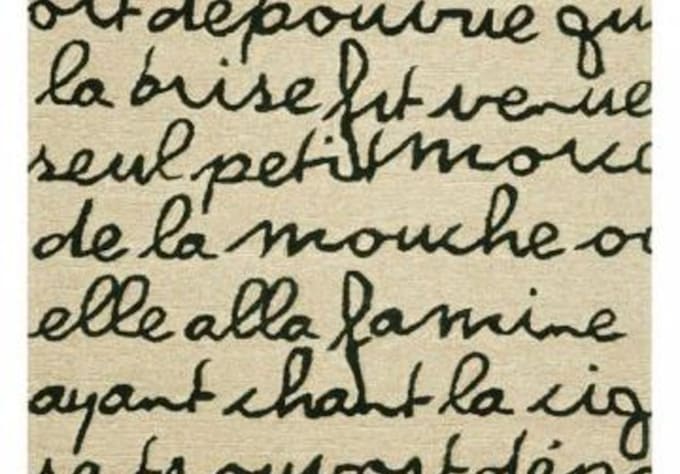 qu
la brise fut venue
seul petit morc
de la mouche o
elle alla famine
ayant chant la cig